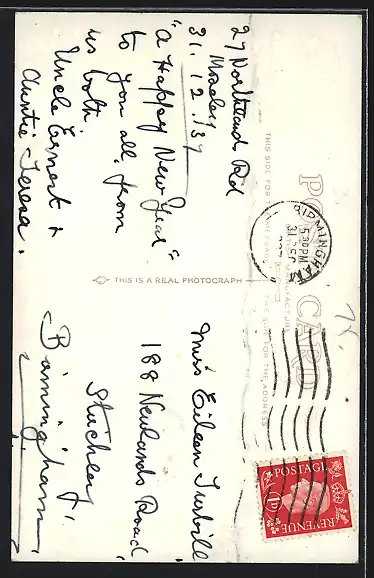 POST CARD
THIS SIDE FOR THE ADDRESS
BIRMINGHAM
5.30 PM
31 DEC
27 Northlands Rd
Moseley
31.12.37
"A Happy New Year"
to you all from
us both
Uncle Ernest &
Auntie Teresa.
THIS IS A REAL PHOTOGRAPH
Miss Eileen
188 Newlands Road,
Stirchley,
Birmingham.
POSTAGE
1D
REVENUE